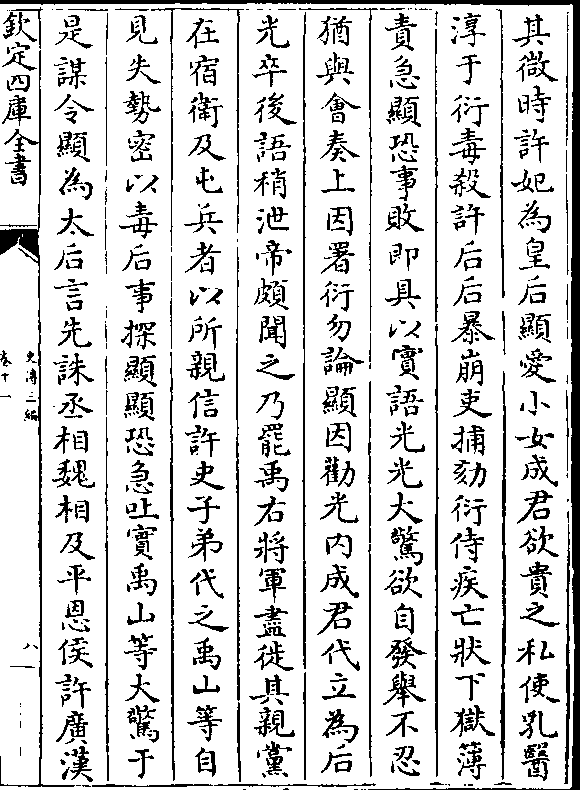 其微時許妃為皇后顯愛小女成君欲貴之私使乳醫
淳于衍毒殺許后后暴崩吏捕劾衍侍疾亡狀下獄簿
責急顯恐事敗即具以實語光光大驚欲自發舉不忍
猶與會奏上因署衍勿論顯因勸光内成君代立為后
光卒後語稍泄帝頗聞之乃罷禹右將軍盡徙其親黨
在宿衛及屯兵者以所親信許史子弟代之禹山等自
見失勢密以毒后事探顯顯恐急吐實禹山等大驚于
是謀令顯為太后言先誅丞相魏相及平恩侯許廣漢
欽定四庫全書
史傳三編
卷十一
八